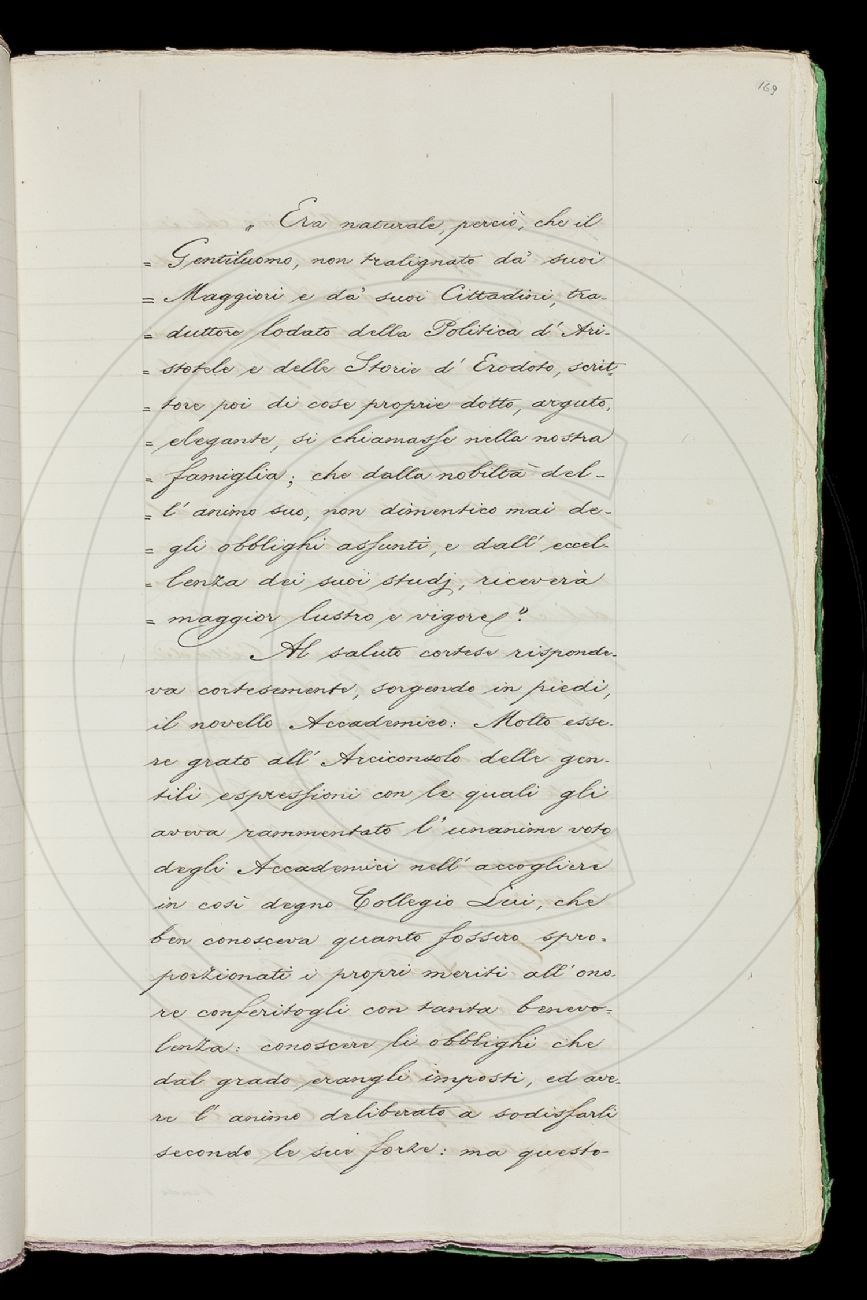 169
„ Era naturale, perciò, che il
= Gentiluomo, non tralignato da' suoi
= Maggiori e da' suoi Cittadini, tra-
= duttore lodato della Politica d'Ari-
= stotele e delle Storie d'Erodoto, scrit-
= tore poi di cose proprie dotto, arguto,
= elegante, si chiamasse nella nostra
= famiglia; che dalla nobiltà del-
= l'animo suo, non dimentico mai de-
= gli obblighi assunti, e dall'eccel-
= lenza dei suoi studj, riceverà
= maggior lustro e vigore."
Al saluto cortese risponde-
va cortesemente, sorgendo in piedi,
il novello Accademico: Molto esse-
re grato all'Arciconsolo delle gen-
tili espressioni con le quali gli
aveva rammentato l'unanime voto
degli Accademici nell'accogliere
in così degno Collegio Lui, che
ben conosceva quanto fossero spro-
porzionati i propri meriti all'ono-
re conferitogli con tanta benevo-
lenza: conoscere li obblighi che
dal grado erangli imposti, ed ave-
re l'animo deliberato a sodisfarli
secondo le sue forze: ma questo